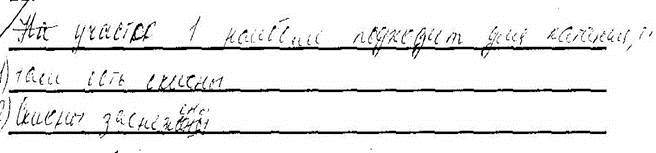 На участок 1 наиболее подходит для катания, т
1) там есть склоны
2) Склоны заснежены